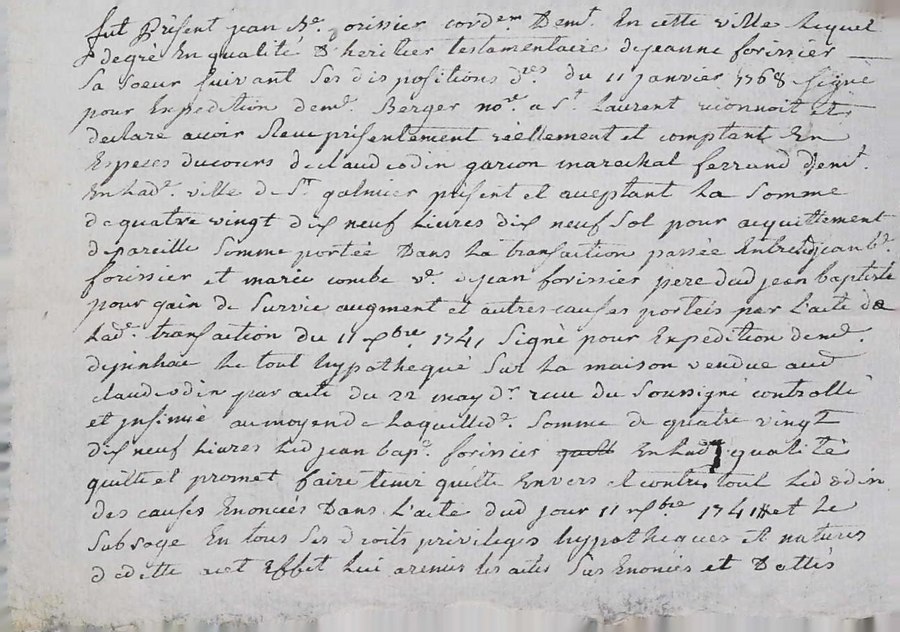 fut Présent jean Bte. forissier cordem. Demt. En cette ville lequel
degré En qualité D'heritier testamentaire dejeanne forissier
Sa Soeur Suivant Ses dispositions dres. du 11 janvier 1768 Signé
pour Expedition deme. Berger nore. a St. Laurent reconnoit et
declare avoir Reçu présentement réellement et comptant En
Especes ducours declaud odin garcon marechal ferrand demt.
En lade. ville de St. galmier présent et aceptant La Somme
de quatre vingt dix neuf Livres dix neuf Sol pour acquittement
depareille Somme portée Dans La transaction passée Entre led jean bt.
forissier et marie combe ve. dejean forissier pere dud jean baptiste
pour gain de Survie augment et autres causes porteés par L'acte de
Lade. transaction du 11 xbre. 1741 Signé pour Expedition deme.
depinhac Le tout hypothequé Sur La maison vendue aud
claud odin par acte du 22 may dr. reçu du Soussigné controllé
et jnsinué au moyen de Laquelle de. Somme de quatre vingt
dix neuf Livres Led jean bape. forissier quitt En lade qualité
quitte et promet faire tenir quitte Envers et contre tout Led odin
des causes Enoncées Dans L'acte dud jour 11 xbre 1741 et Le
Subroge En tous Ses droits privileges hypotheques et natures
de dette a cet Effet Lui a remis les actes Sus Enoncés et Dattés